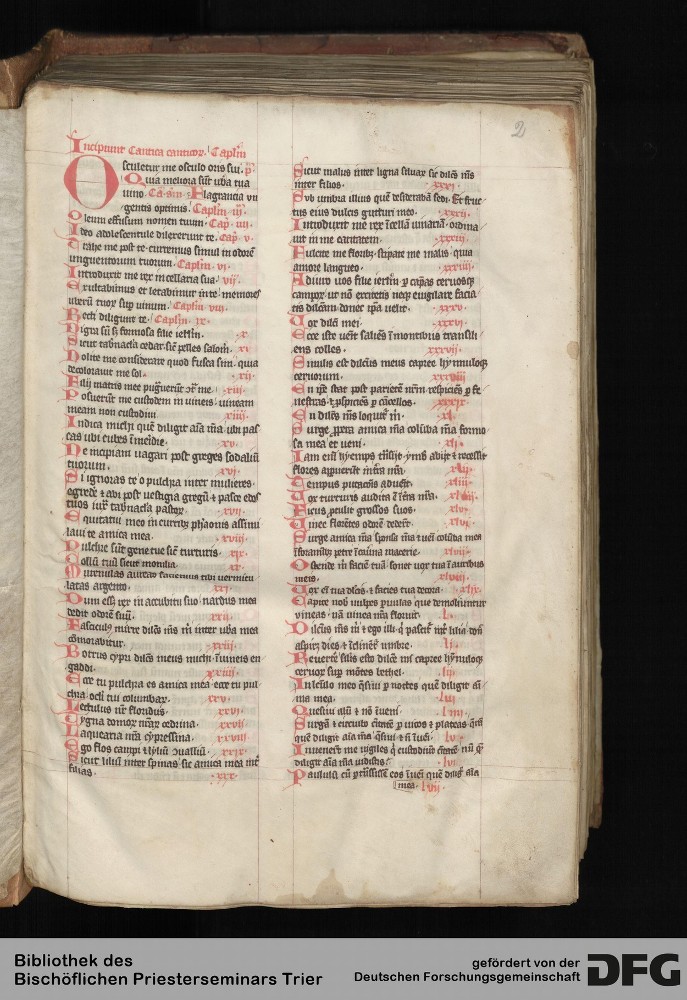 2
Incipiunt Cantica canticor. Caplm
Osculetur me osculo oris sui. p.
Quia meliora sūt ub̄a tua
uino. Flagrancia un
gentis optimis. Caplm iij.
Oleum effusum nomen tuum. Cap. iiij.
Ideo adolescentule dilexerunt te. Cap. v.
Trahe me post te curremus simul in odorē
unguentorum tuorum. Caplm vi.
Introduxit me rex in cellaria sua. vij.
Exultabimus et letabimur in te memores
uberū tuor sup uinum. Caplm viij.
Recti diligunt te. Caplm ix.
Nigra sū s; formosa filie ierlm. x.
Sicut tab̄nacla cedar sic̄ pelles salom̄. xi.
Nolite me considerare quod fusca sim quia
decolorauit me sol. xij.
Filij matris mee pugn̄erūt 9t̄ me. xiij.
Posuerūt me custodem in uineis uineam
meam non custodiui. xiiij.
Indica michi quē diligit aīa m̄a ubi pas
cas ubi cubes ī meīdie. xv.
Ne incipiam uagari post greges sodaliū
tuorum. xvi.
Si ignoras te o pulchra inter mulieres
egredē et abi post uestigia gregū et pasce edos
tuos iux̄ tab̄nacla pastoꝝ. xvij.
Equitatui meo in curribꝫ ph̄aonis assimi
laui te amica mea. xviij.
Pulchre sūt gene tue sic̄ turturis. xix.
Collū tuū sicut monilia. xx.
Murenulas aureas faciemus tibi uermicu
latas argento. xxi.
Dum ess; rex in accubitu suo nardus mea
dedit odorē suū. xxij.
Fasciculꝫ mirre dilc̄s m̄s m̄ inter ub̄a mea
cōmorabitur. xxiij.
Botrus cypri dilc̄s meus michi ī uineis en
gaddi. xxiiij.
Ecce tu pulchra es amica mea ecce tu pul
chra oc̄li tui columbaꝝ. xxv.
Lectulus nr̄ floridus. xxvi.
Tygna domoꝝ nr̄aꝝ cedrina. xxvij.
Laquearia nr̄a cypressina. xxviij.
Ego flos campi et lyliū 9ualliū. xxix.
Sicut liliū inter spinas sic amica mea int̄
filias. xxx.
Sicut malus inter ligna siluaꝝ sic dilc̄s m̄s
inter filios. xxxi.
Sub umbra illius quē desiderabā sedi. Et fruc
tus eius dulcis gutturi meo. xxxij.
Introduxit me rex ī cellā uinariā ordina
uit in me caritatem. xxxiij.
Fulcite me floribꝫ stipate me malis quia
amore langueo. xxxiiij.
Adiuro uos filie ierlm p capras ceruosqꝫ
campoꝝ ut nō excitetis neqꝫ euigilare facia
tis dilc̄am donec ip̄a uelit. xxxv.
Uox dilc̄i mei. xxxvi.
Ecce iste uenit saliēs ī montibus transili
ens colles. xxxvij.
Similis est dilc̄us meus capree hynnuloqꝫ
ceruorum. xxxviij.
En ip̄e stat post parietē nr̄m respiciēs p fe
nestras et pspiciēs p cācellos. xxxix.
En dilc̄s m̄s loquit̄ m̄. xl.
Surge ppera amica m̄a coluba m̄a formo
sa mea et ueni. xli.
Iam eni hyemps t̄nsijt ymb abijt et recessit
flores apparuerūt in t̄ra nr̄a. xlij.
Tempus putacōis aduēit. xliij.
Uox turturis audita ē ī t̄ra nr̄a. xliiij.
Ficus ptulit grossos suos. xlv.
Uinee florētes odorē dederūt. xlvi.
Surge amica m̄a spōsa m̄a et ueni coluba mea
ī foraminibꝫ petre ī cauina macerie. xlvij.
Ostende m̄ faciē tuā sonet uox tua ī auribus
meis. xlviij.
Uox ei tua dlcis et facies tua decora. xlix.
Capite nob uulpes puulas que demoliuntur
uineas nā uinea nr̄a floruit. l.
Dilcūs m̄s m̄ et ego illi q pascit̄ int̄ lilia don̄
aspiret dies et īclinēt̄ umbre. li.
Reuert̄e similis esto dilc̄e mi capree hynnuloqꝫ
ceruoꝝ sup mōtes bethel. lij.
In lectulo meo q̄siui p noctes quē diligit ai
ma mea. liij.
Quesiui illū et nō īueni. liiij.
Surgā et circuibo ciuitatē p uicos et plateas q̄ram
quē diligit aīa m̄a q̄siui et n̄ īueni. lv.
Inuenerūt me uigiles q custodiūt ciuitatē nū q̄
diligit aīa m̄a uidistis. lvi.
Paululū cū ptrāsissem eos īueni quē diligit aīa
mea. lvij.
Bibliothek des
Bischöflichen Priesterseminars Trier
gefördert von der
Deutschen Forschungsgemeinschaft
DFG